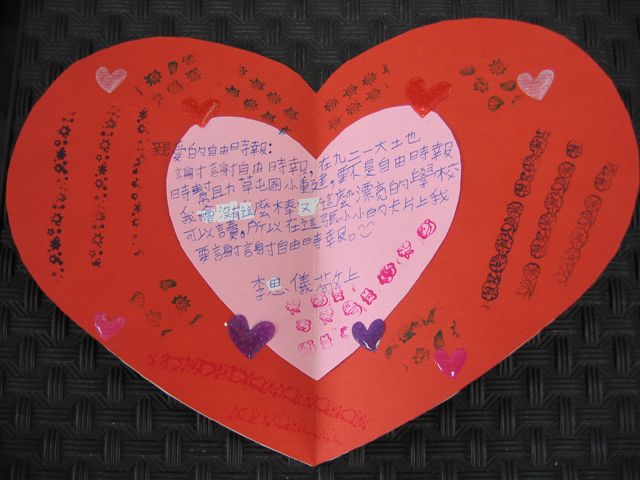 親愛的自由時報:
謝謝自由時報,在九二一大地
時幫助草屯國小重建,要不是自由時報
我會沒有這麼棒又這麼漂亮的學校
可以讀,所以在這張小小的卡片上我
要謝謝自由時報。
李思儀 敬上